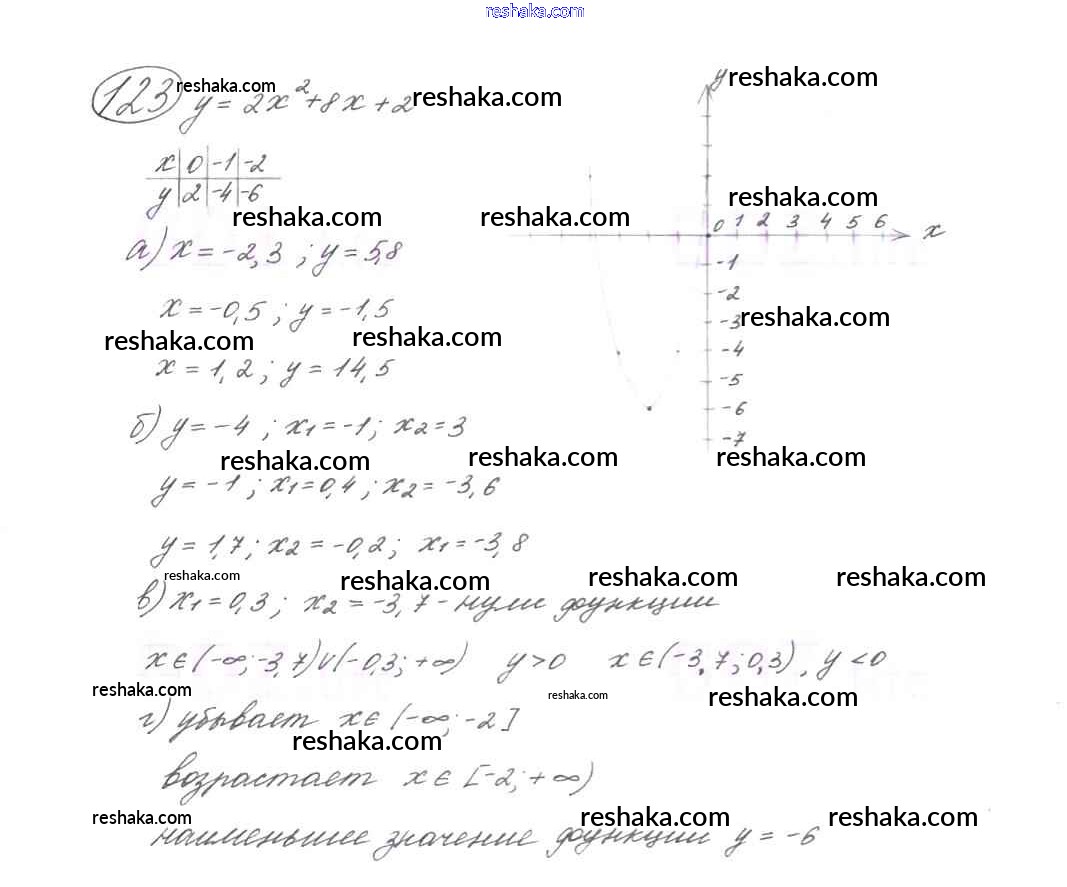 reshaka.com
123 reshaka.com
y = 2x² + 8x + 2 reshaka.com
x | 0 | -1 | -2
y | 2 | -4 | -6
reshaka.com reshaka.com
а) x = -2,3 ; y = 5,8
x = -0,5 ; y = -1,5
reshaka.com reshaka.com
x = 1,2 ; y = 14,5
б) y = -4 ; x₁ = -1 ; x₂ = 3
reshaka.com reshaka.com reshaka.com
y = -1 ; x₁ = 0,4 ; x₂ = -3,6
y = 1,7 ; x₂ = -0,2 ; x₁ = -3,8
reshaka.com reshaka.com reshaka.com reshaka.com
в) x₁ = 0,3 ; x₂ = -3,7 - нули функции
x ∈ (-∞; -3,7) ∪ (-0,3; +∞) y > 0 x ∈ (-3,7; 0,3), y < 0
reshaka.com reshaka.com reshaka.com
г) убывает x ∈ (-∞; -2]
reshaka.com
возрастает x ∈ [-2; +∞)
reshaka.com reshaka.com reshaka.com
наименьшее значение функции y = -6
y reshaka.com
reshaka.com
0 1 2 3 4 5 6 x
-1
-2
-3 reshaka.com
-4
-5
-6
-7